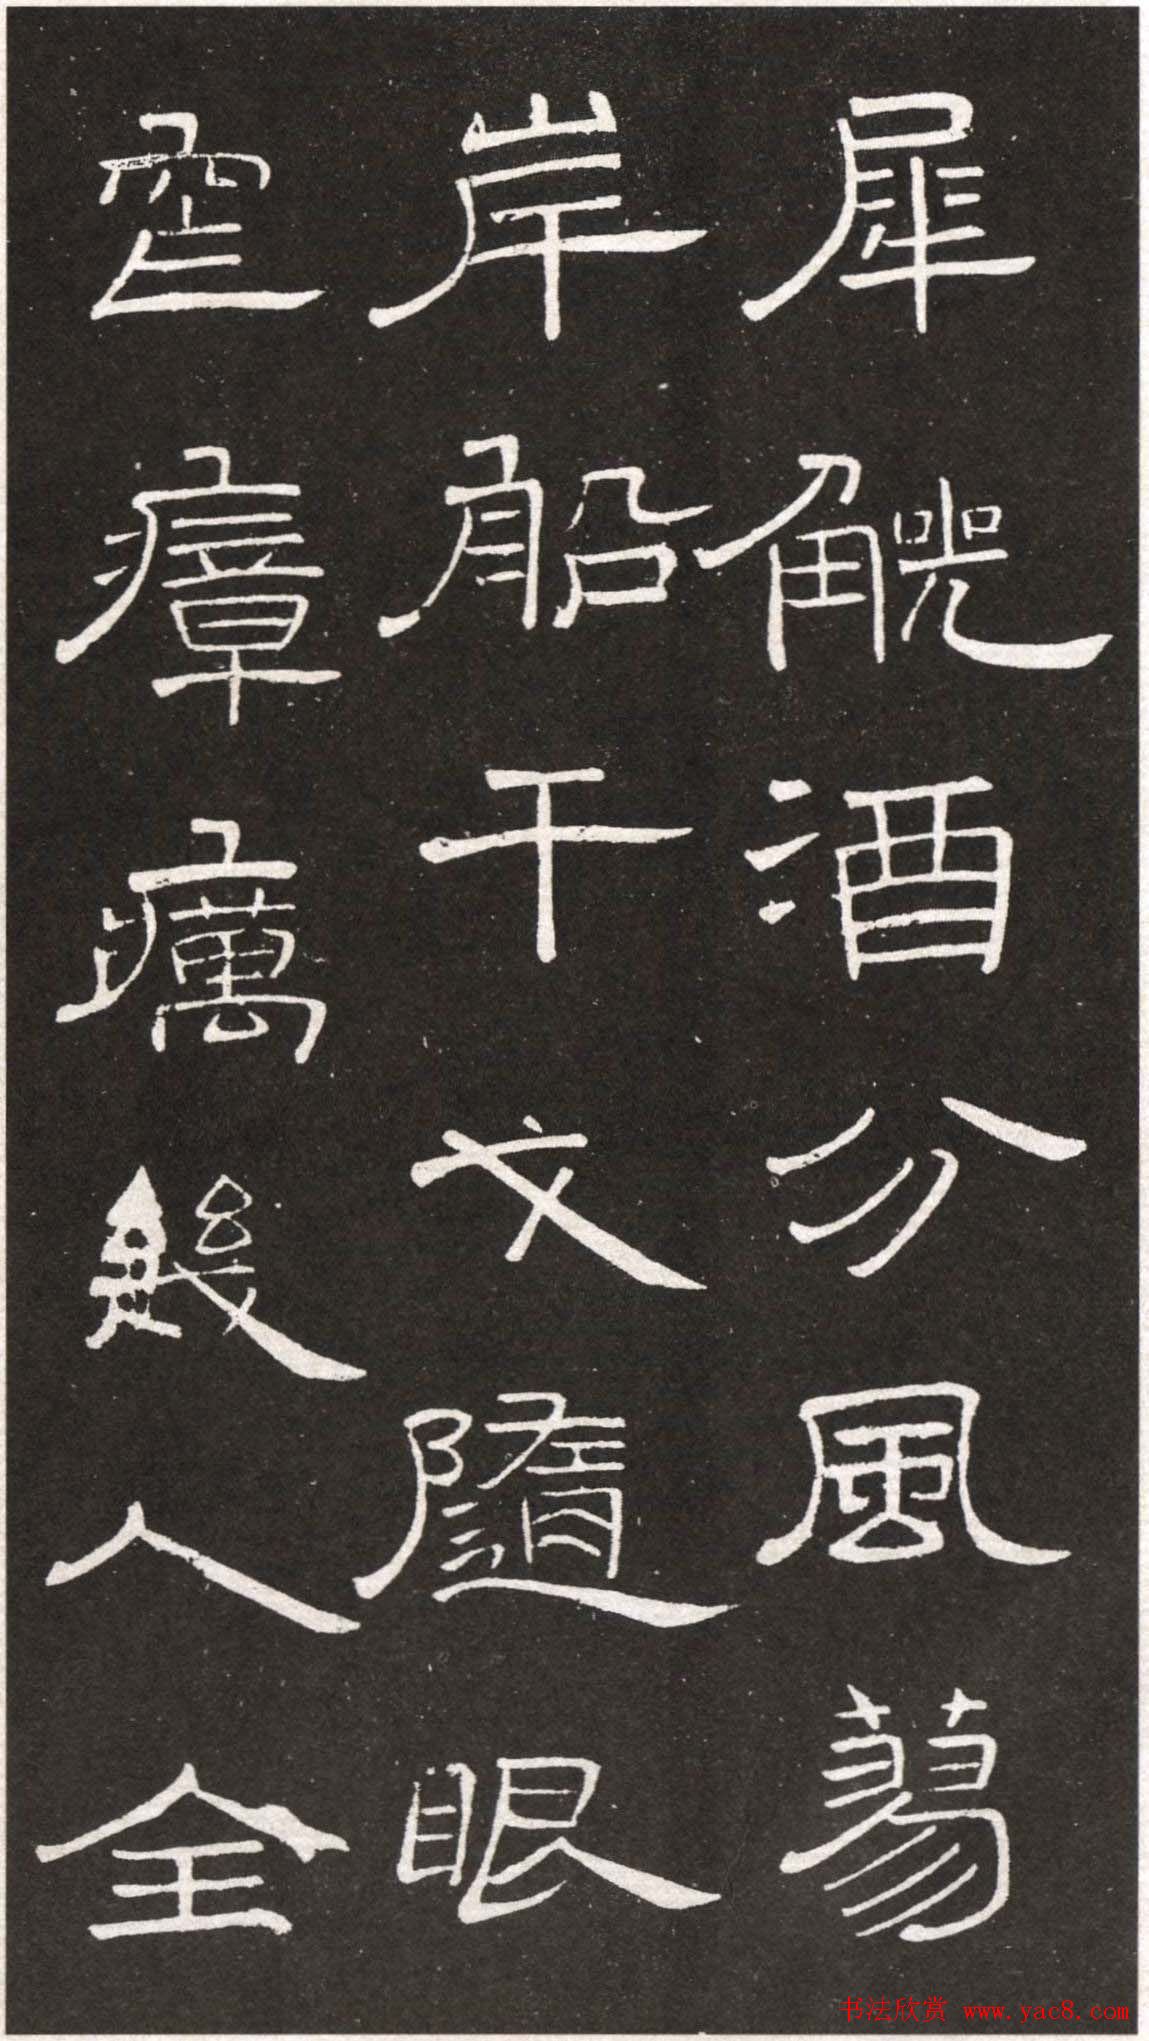 犀觥酒分風蕩
岸船干戈隨眼
空瘴癘幾人全
书法欣赏 www.yac8.com